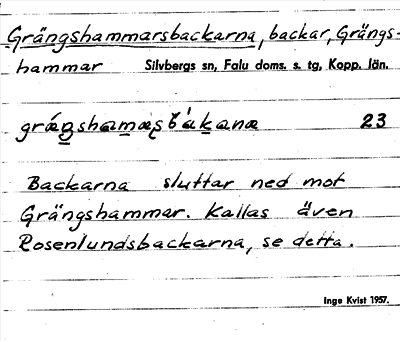 Grängshammarsbackarna, backar, Grängs-
hammar Silvbergs sn, Falu doms. s. tg, Kopp. län.
23
Backarna sluttar ned mot
Grängshammar. Kallas även
Rosenlundsbackarna, se detta.
Inge Kvist 1957.